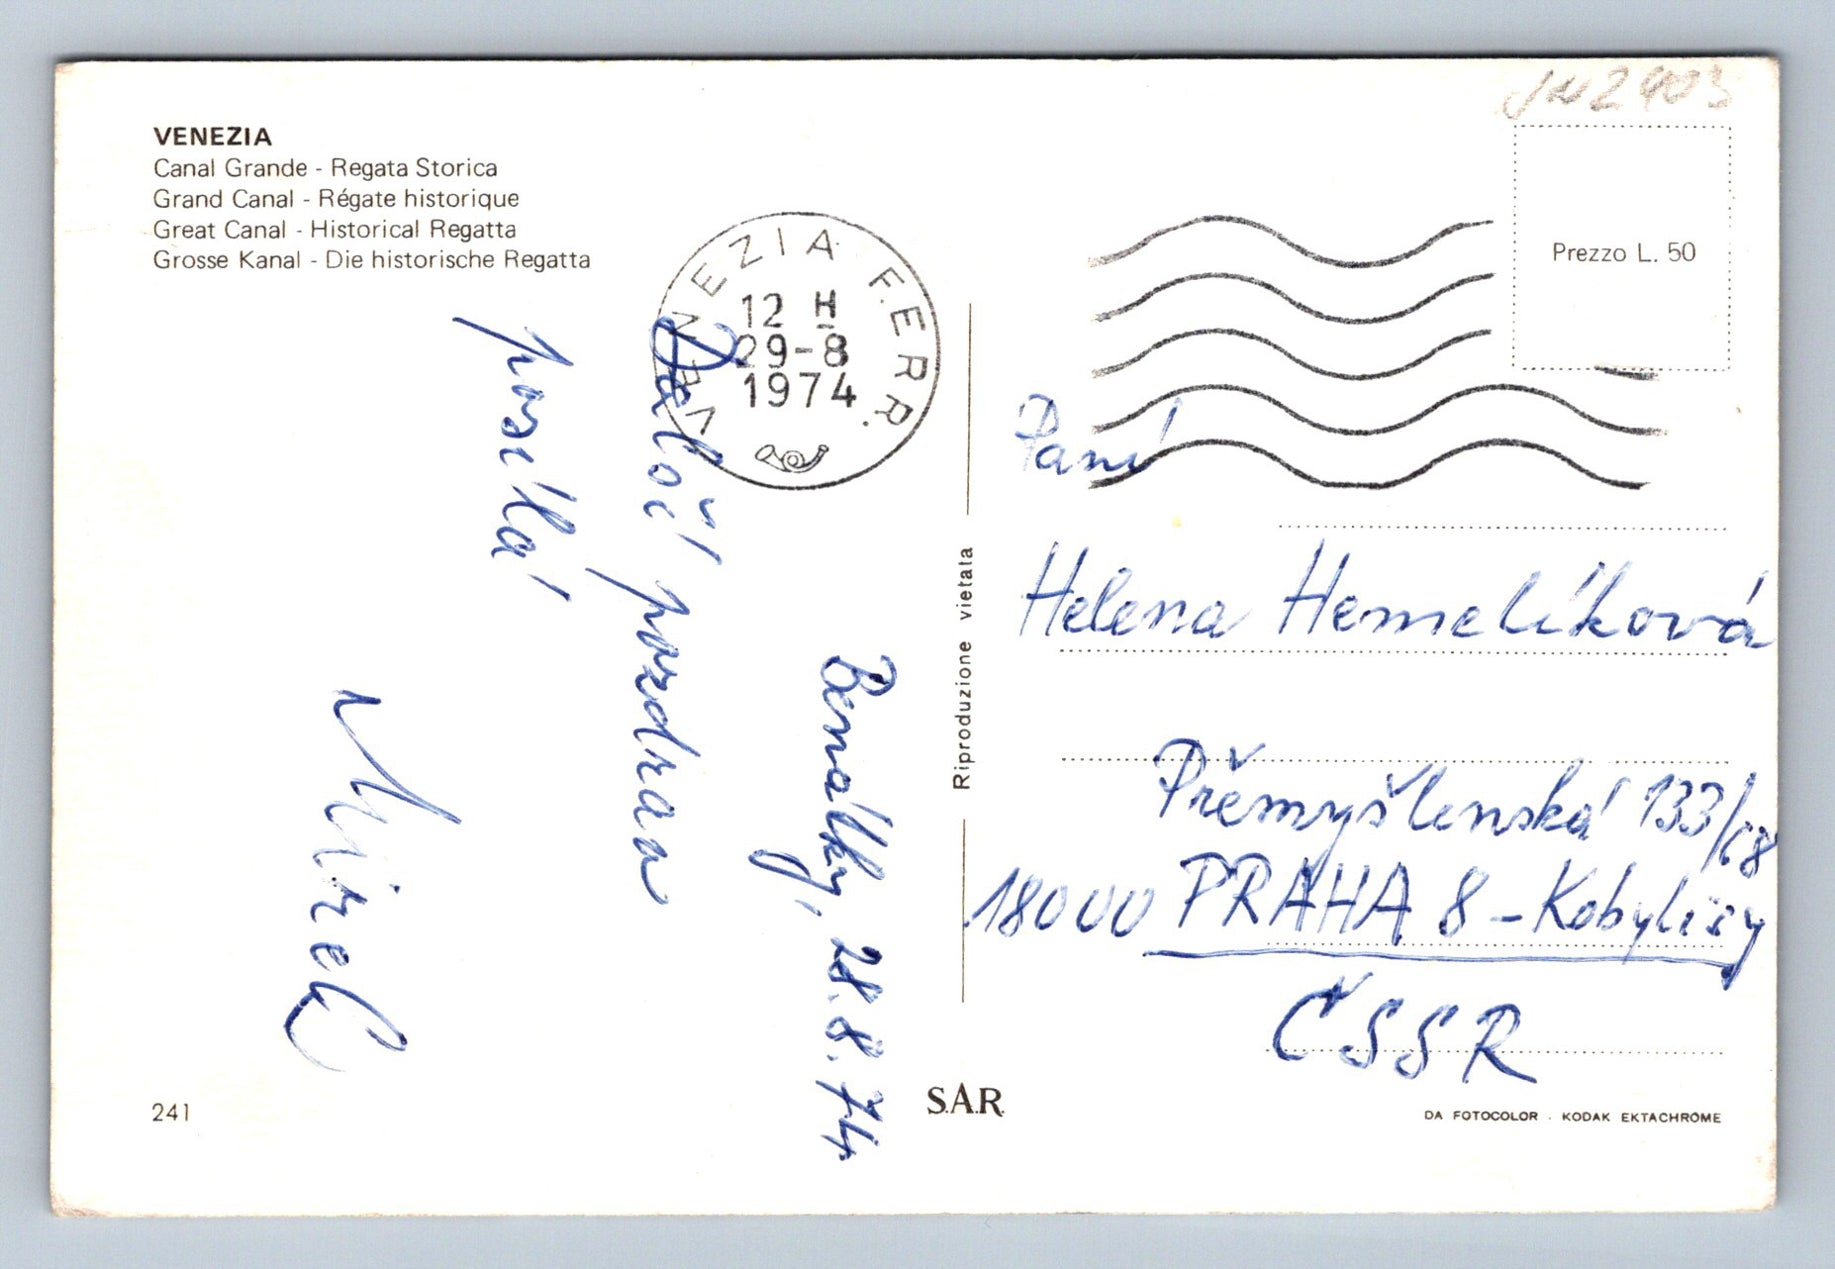 VENEZIA
Canal Grande - Regata Storica
Grand Canal - Régate historique
Great Canal - Historical Regatta
Grosse Kanal - Die historische Regatta
VENEZIA FERR.
12 H
29-8
1974
Prezzo L. 50
Benátky, 28.8.74
Další pozdrav
posílá
Mirek
Riproduzione vietata
Paní
Helena Hemelíková
Přemyšlenská 133/68
18000 PRAHA 8 - Kobylisy
ČSSR
241
S.A.R.
DA FOTOCOLOR - KODAK EKTACHROME